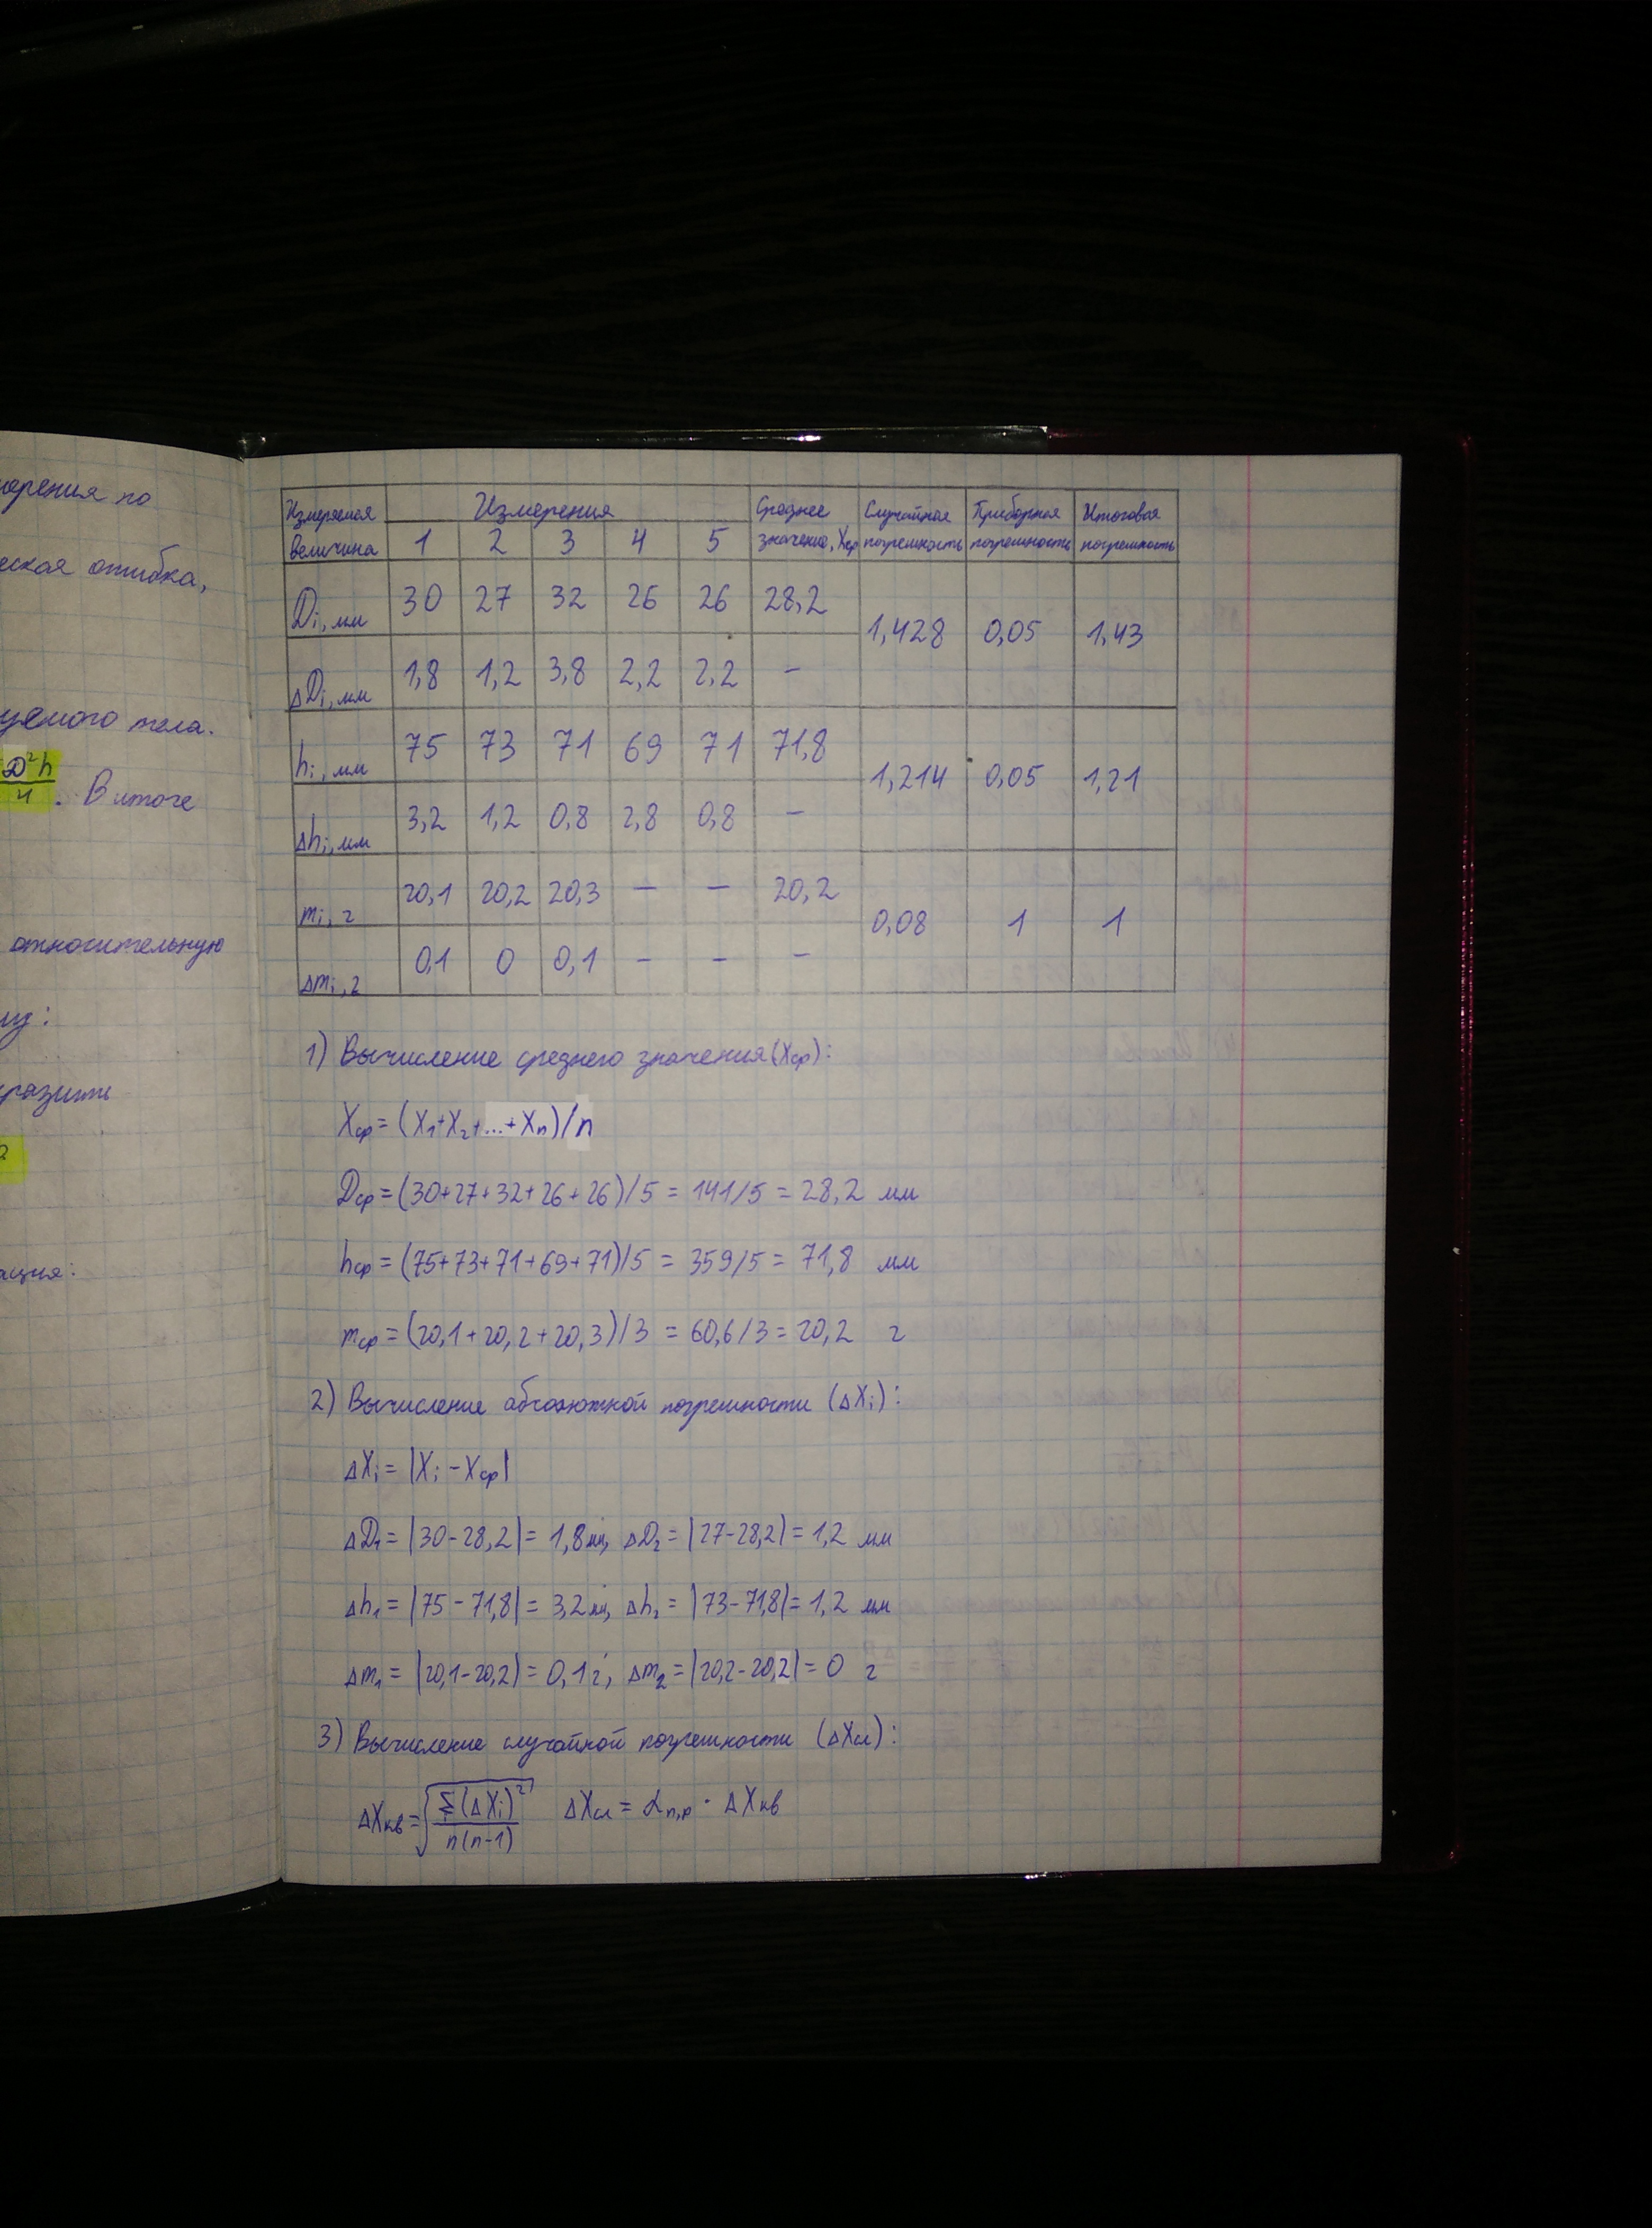 мерения по
еская ошибка,
уемого тела.
D²h
4 . В итоге
относительную
му:
разить
ация:
Измеряемая величина Измерения Среднее значение, Xср Случайная погрешность Приборная погрешность Итоговая погрешность
1 2 3 4 5
Di, мм 30 27 32 26 26 28,2 1,428 0,05 1,43
ΔDi, мм 1,8 1,2 3,8 2,2 2,2 –
hi, мм 75 73 71 69 71 71,8 1,214 0,05 1,21
Δhi, мм 3,2 1,2 0,8 2,8 0,8 –
mi, г 20,1 20,2 20,3 – – 20,2 0,08 1 1
Δmi, г 0,1 0 0,1 – – –
1) Вычисление среднего значения (Xср):
Xср = (X₁+X₂+...+Xn)/n
Dср = (30+27+32+26+26)/5 = 141/5 = 28,2 мм
hср = (75+73+71+69+71)/5 = 359/5 = 71,8 мм
mср = (20,1+20,2+20,3)/3 = 60,6/3 = 20,2 г
2) Вычисление абсолютной погрешности (ΔXi):
ΔXi = |Xi – Xср|
ΔD₁ = |30-28,2| = 1,8 мм, ΔD₂ = |27-28,2| = 1,2 мм
Δh₁ = |75-71,8| = 3,2 мм, Δh₂ = |73-71,8| = 1,2 мм
Δm₁ = |20,1-20,2| = 0,1 г, Δm₂ = |20,2-20,2| = 0 г
3) Вычисление случайной погрешности (ΔXсл):
ΔXкв = √(Σ(ΔXi)²/n(n-1)) ΔXсл = αn,p · ΔXкв